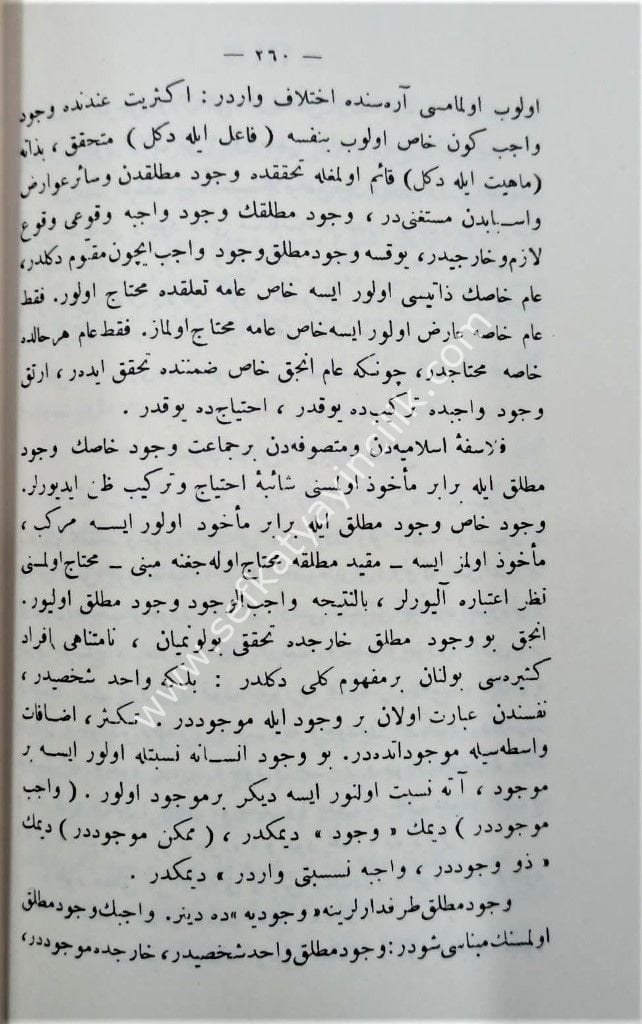 — ٢٦٠ —
اولوب اولمامسی آره‌سنده اختلاف واردر : اكثریت عندنده وجود
واجب كون خاص اولوب بنفسه ( فاعل ایله دكل ) متحقق ، بذاته
(ماهیت ایله دكل) قائم اولمغله تحققده وجود مطلقدن وسائر عوارض
واسبابدن مستغنی‌در ، وجود مطلقك وجود واجبه وقوعی وقوع
لازم وخارجیدر، یوقسه وجود مطلق وجود واجب ایچون مقوّم دكلدر،
عام خاصك ذاتیسی اولور ایسه خاص عامه تعلقده محتاج اولور. فقط
عام خاصه عارض اولور ایسه خاص عامه محتاج اولماز. فقط عام هر حالده
خاصه محتاجدر، چونكه عام انجق خاص ضمننده تحقق ایده‌ر، ارتق
وجود واجبده تركیب‌ده یوقدر ، احتیاج‌ده یوقدر .
فلاسفۀ اسلامیه‌دن ومتصوفه‌دن بر جماعت وجود خاصك وجود
مطلق ایله برابر مأخوذ اولمسنی شائبۀ احتیاج وتركیب ظن ایدیورلر.
وجود خاص وجود مطلق ایله برابر مأخود اولور ایسه مركب ،
مأخوذ اولمز ایسه – مقید مطلقه محتاج اوله‌جغنه مبنی – محتاج اولمسنی
نظر اعتباره آلیورلر ، بالنتیجه واجب الوجود وجود مطلق اولیور.
انجق بو وجود مطلق خارجده تحققی بولونمیان ، نامتناهی افراد
كثیره‌سی بولنان بر مفهوم كلی دكلدر : بلكه واحد شخصیدر ،
نفسندن عبارت اولان بر وجود ایله موجوددر . تكثر ، اضافات
واسطه‌سیله موجوداتده‌در. بو وجود انسانه نسبتله اولور ایسه بر
موجود ، آته نسبت اولنور ایسه دیكر بر موجود اولور . ( واجب
موجوددر ) دیمك « وجود » دیمكدر ، ( ممكن موجوددر ) دیمك
« ذو وجوددر ، واجبه نسبتی واردر » دیمكدر .
وجود مطلق طرفدارلرینه « وجودیه » ده دینر. واجبك وجود مطلق
اولمسنك مبناسی شودر: وجود مطلق واحد شخصیدر، خارجده موجوددر،
www.sefkatyayincilik.com